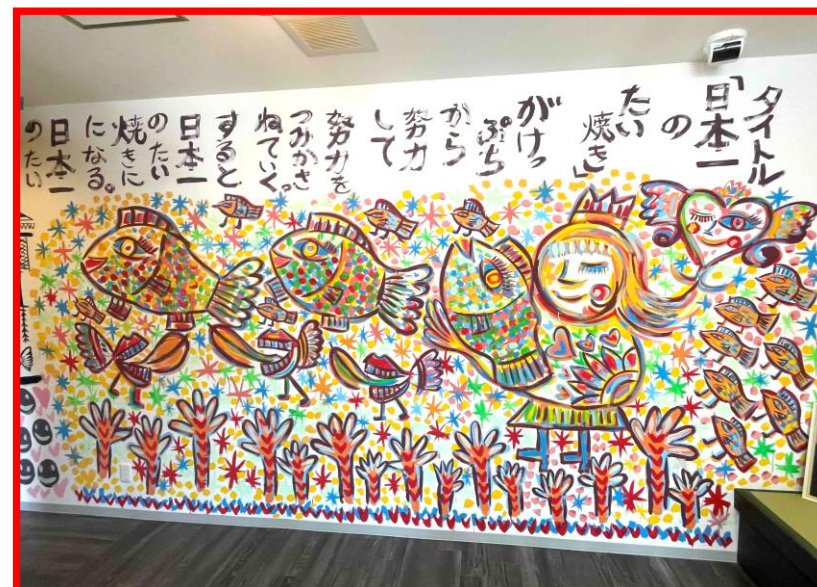 タイトル
「日本一
の
たい
焼き」
がけっ
ぷち
から
努力
して
努力を
つみかさ
ねていく。
すると
日本一
のたい
焼きに
になる。
日本一
のたい